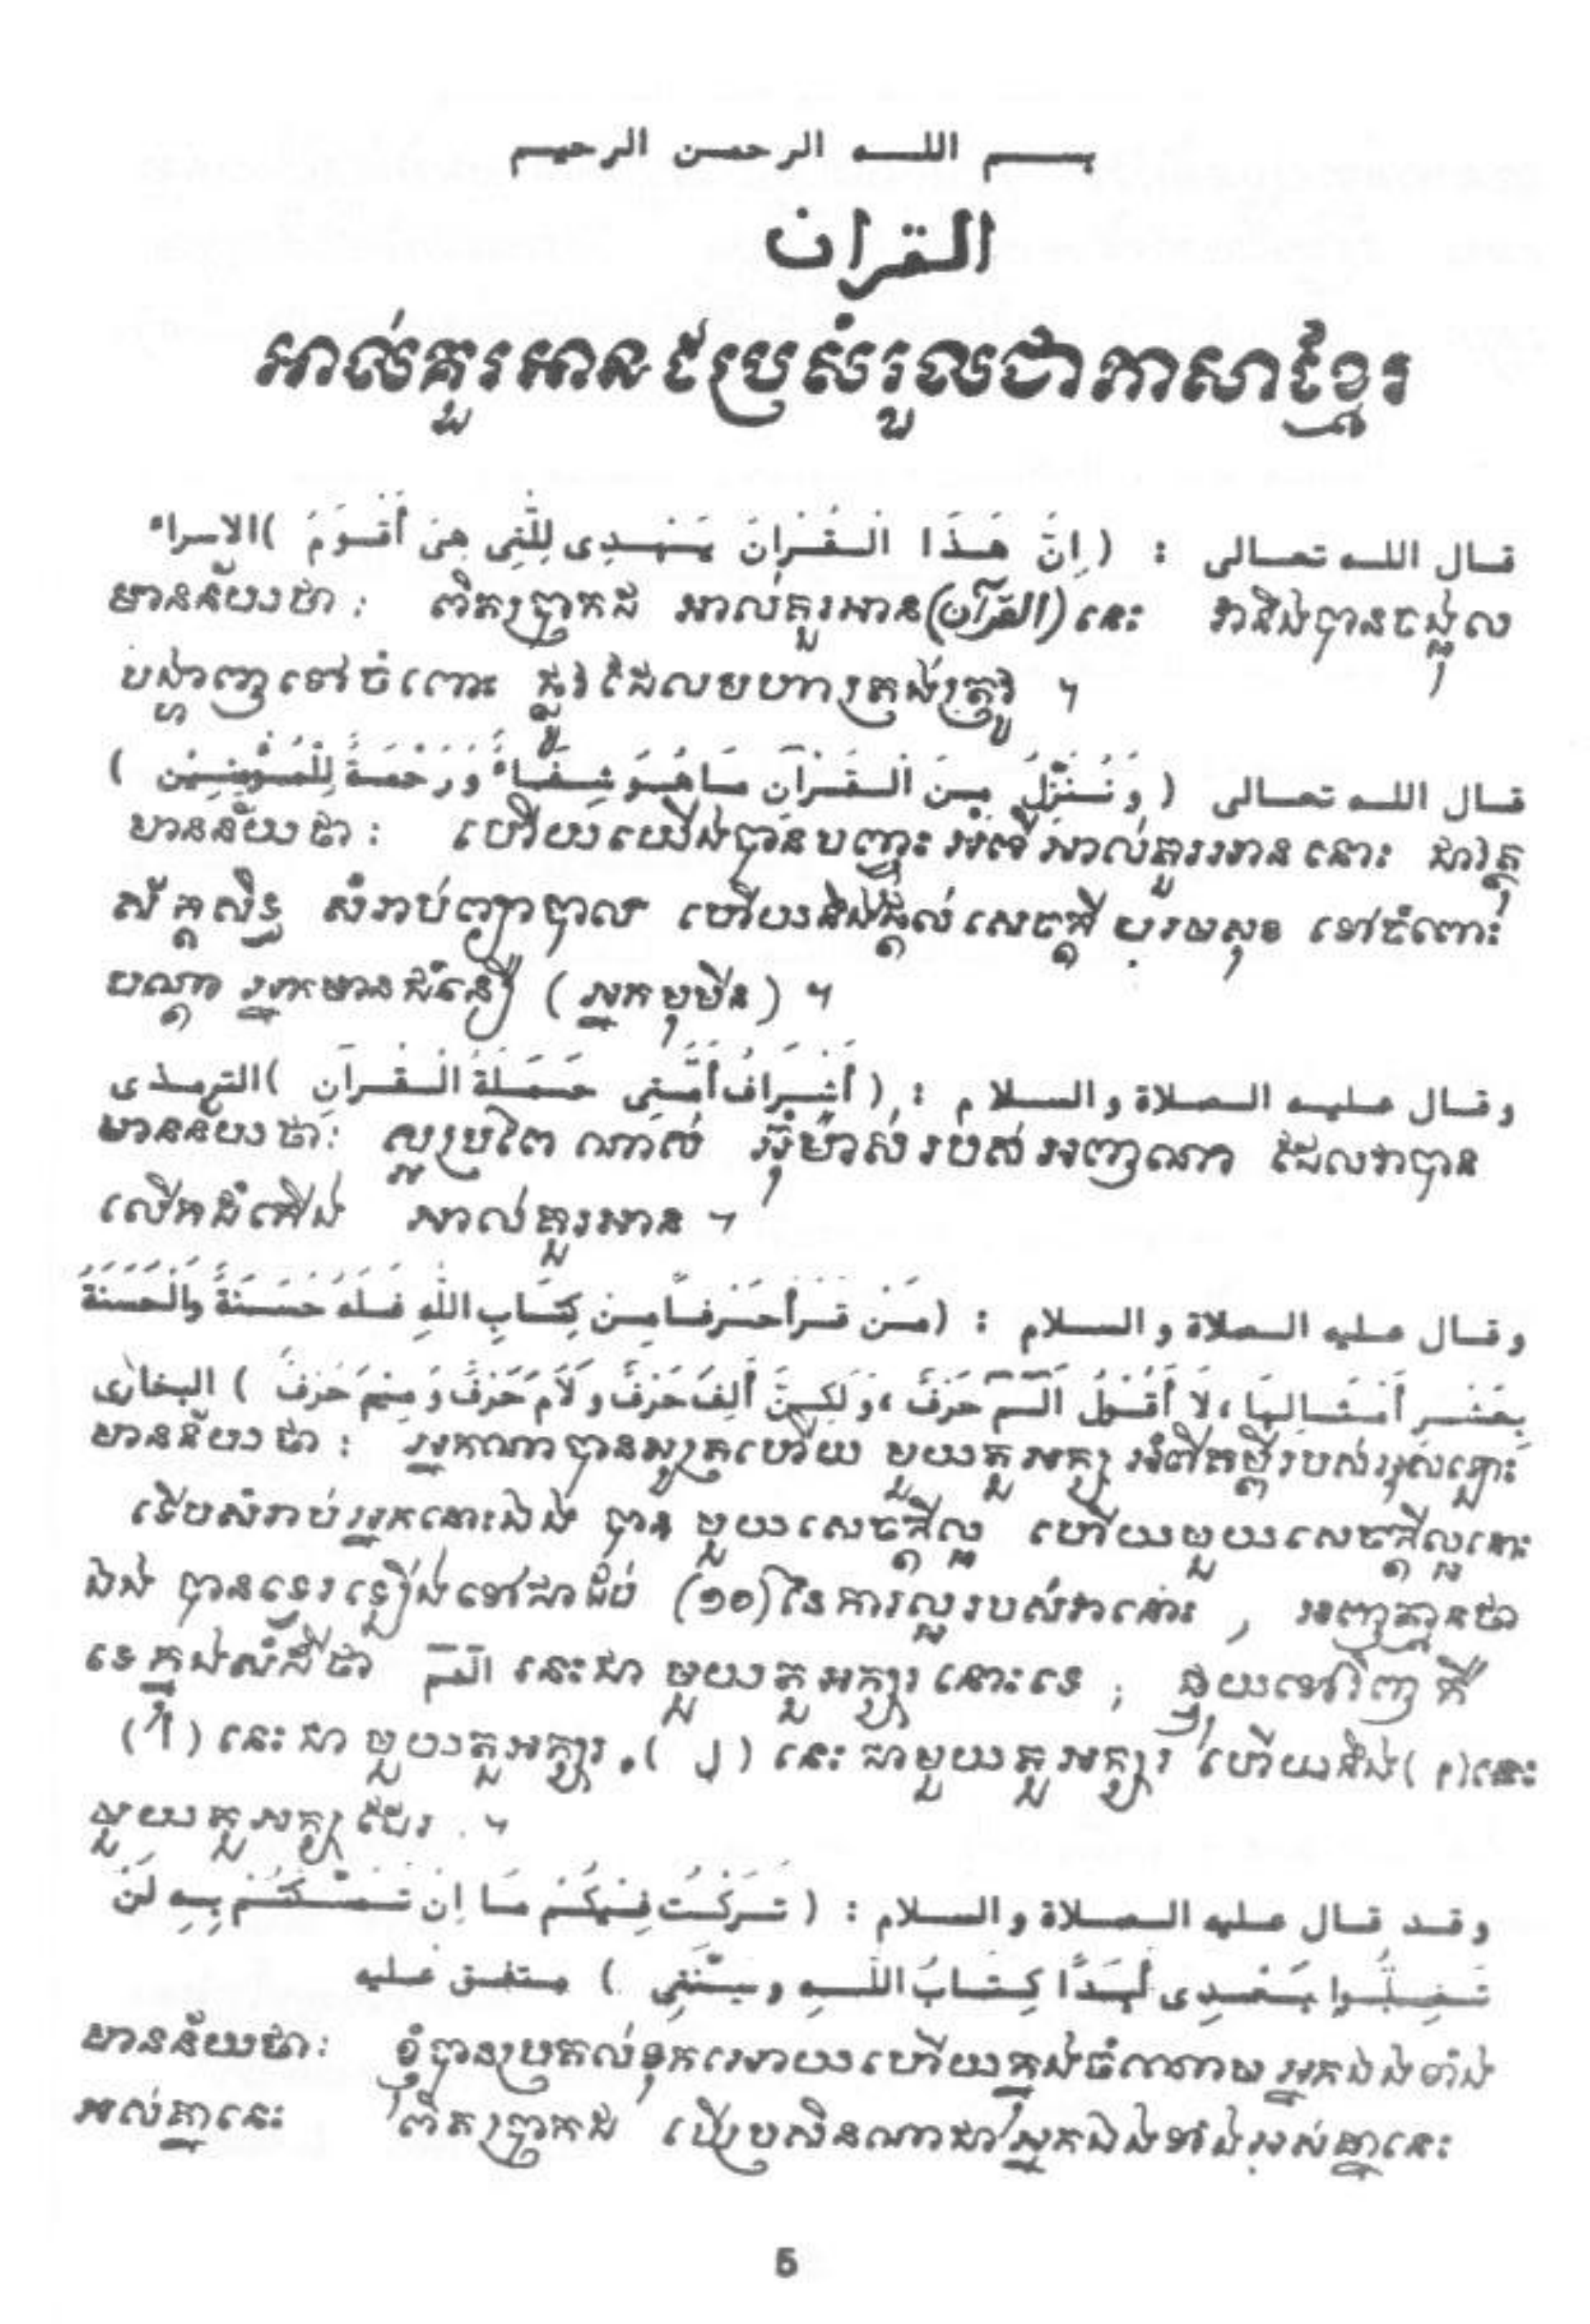 بسم الله الرحمن الرحيم
القران
អាល់គួរអានប្រែសំរួលជាភាសាខ្មែរ
قال الله تعالى : ( اِنَّ هَذَا الْقُرْانَ يَهْدِى لِلَّتِى هِىَ أَقْوَمُ )الاسراء
មានន័យថា : ពិតប្រាកដ អាល់គួរអាន(القرآن) នេះ វានឹងបានចង្អុល
បង្ហាញទៅចំពោះ ផ្លូវដែលមហាត្រង់ត្រូវ ។
قال الله تعالى ( وَنُنَزِّلُ مِنَ الْقُرْآنِ مَاهُوَ شِفَاءٌ وَرَحْمَةٌ لِلْمُؤْمِنِيْنَ )
មានន័យថា : ហើយយើងបានបញ្ចុះ អំពីអាល់គួរអាន នោះ ជាវត្ថុ
ស័ក្តសិទ្ធ សំរាប់ព្យាបាល ហើយនឹងផ្តល់សេចក្តី បរមសុខ ទៅចំពោះ
បណ្តា អ្នកមានជំនឿ ( អ្នកមុមីន ) ។
وقال عليه الصلاة والسلام : ( أَشْرَافُ أُمَّتِى حَمَلَةُ الْقُرْآنِ )الترمذى
មានន័យថា : ល្អប្រពៃ ណាស់ អ៊ុម៉ាស់ របស់អញណា ដែលវាបាន
លើកដំកើង អាល់គួរអាន ។
وقال عليه الصلاة والسلام : (مَنْ قَرَأَحَرْفًامِنْ كِتَابِ اللَّهِ فَلَهُ حَسَنَةٌ وَالْحَسَنَةُ
بِعَشْرِ أَمْثَالِهَا ، لَا أَقُوْلُ الٓمّٓ حَرْفٌ ، وَلَكِنْ أَلِفٌ حَرْفٌ وَلَامٌ حَرْفٌ وَمِيْمٌ حَرْفٌ ) البخارى
មានន័យថា : អ្នកណាបានសូត្រហើយ មួយតួអក្ស អំពីគម្ពីររបស់អុលឡោះ
ទើបសំរាប់អ្នកនោះឯង បាន មួយសេចក្តីល្អ ហើយមួយសេចក្តីល្អនោះ
ឯង បានទេរឡើងទៅជាដប់ (១០) នៃការល្អរបស់វានោះ , អញគ្មានថា
ទេក្នុងសំដីថា الٓمّٓ នេះជា មួយតួអក្សរ នោះទេ ; ផ្ទុយទៅវិញ គឺ
(أ) នេះ ជា មួយតួអក្សរ . ( ل ) នេះ ជាមួយតួអក្សរ ហើយនឹង ( م )នេះ
មួយតួអក្សរដែរ . ។
وقد قال عليه الصلاة والسلام : ( تَرَكْتُ فِيْكُمْ مَا اِنْ تَمَسَّكْتُمْ بِهِ لَنْ
تَضِلُّوا بَعْدِى أَبَدًا كِتَابُ اللَّهِ وسُنَّتِى ) متفق عليه
មានន័យថា : ខ្ញុំបានប្រគល់ទុកអោយហើយក្នុងចំណោម អ្នកឯងទាំង
អស់គ្នានេះ ពិតប្រាកដ បើប្រសិនណាជាអ្នកឯងទាំងអស់គ្នានេះ
5